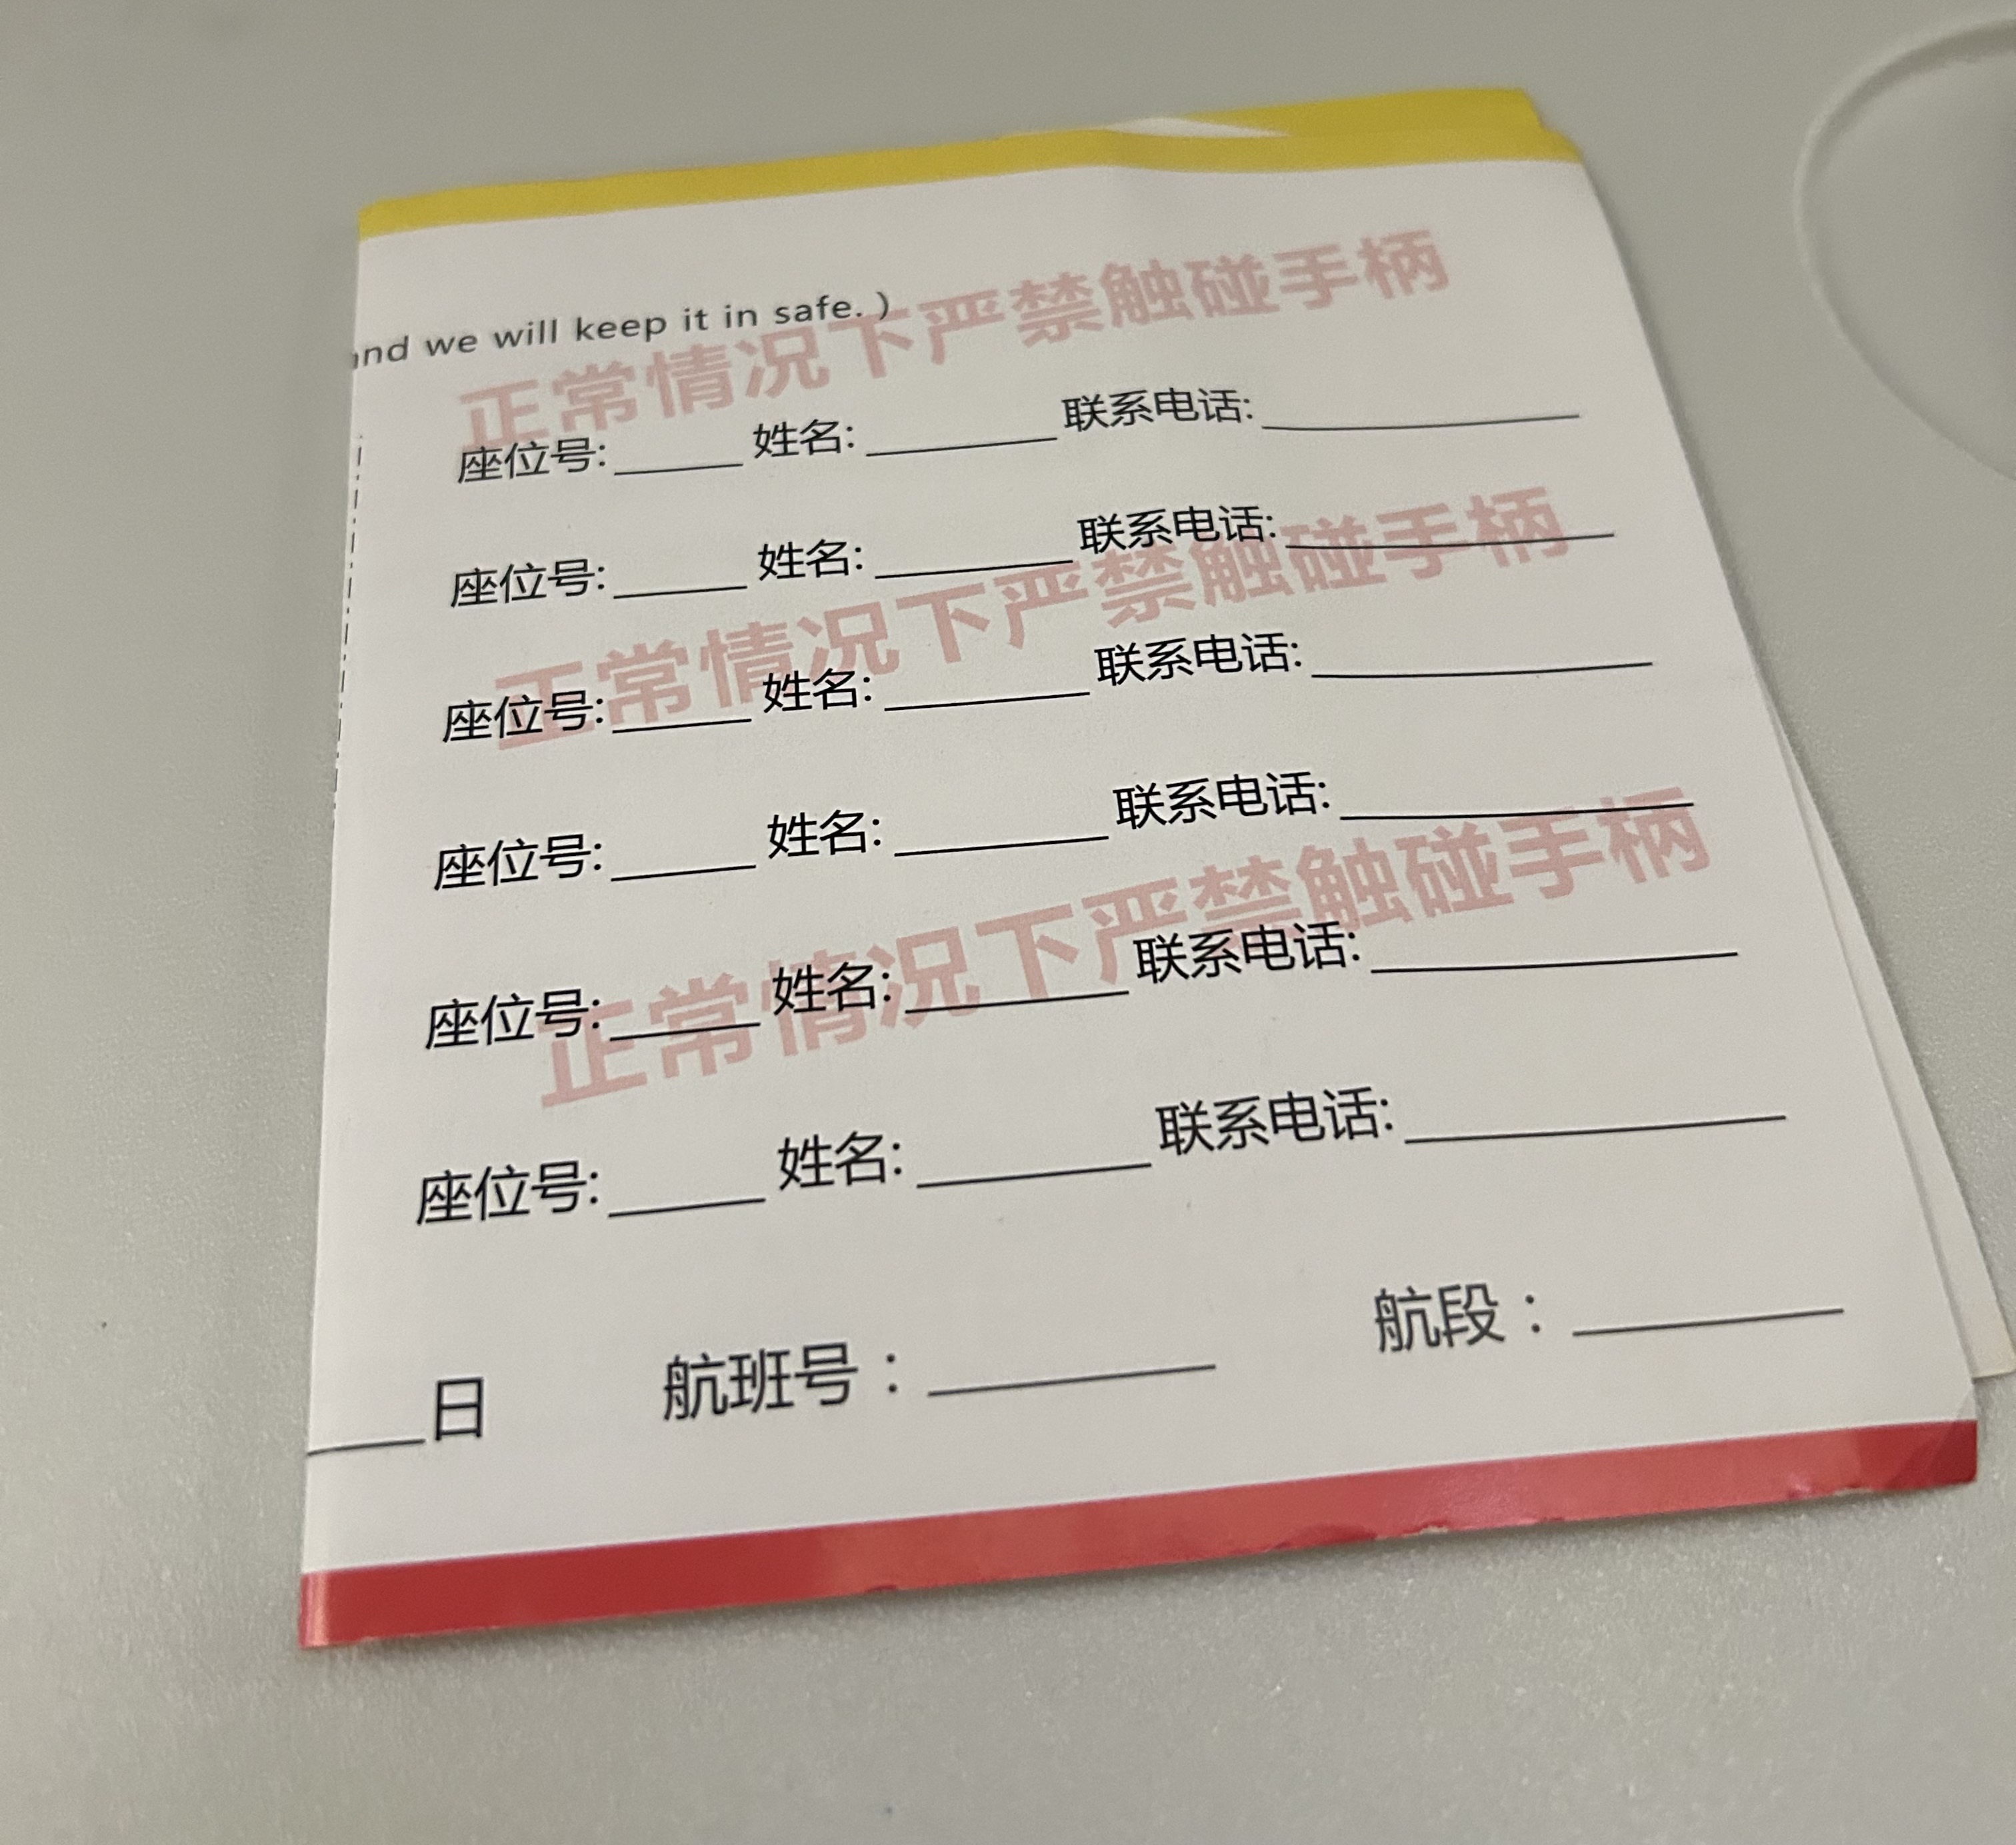 nd we will keep it in safe. )
正常情况下严禁触碰手柄
座位号:______ 姓名:_________联系电话:_______________
座位号:______ 姓名:_________联系电话:_______________
正常情况下严禁触碰手柄
座位号:______ 姓名:_________联系电话:_______________
座位号:______ 姓名:_________联系电话:_______________
正常情况下严禁触碰手柄
座位号:______ 姓名:_________联系电话:_______________
座位号:______ 姓名:_________联系电话:_______________
____日 航班号：_________ 航段：________